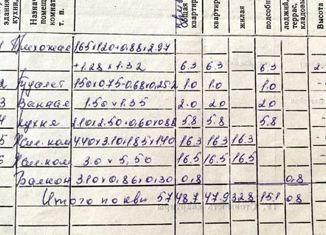 здания
кухни,
Назначен
помещен
комнат
т. п.
общая
квартир
квартир
жилая
подсобн
лоджий,
террас,
кладовы
Высота
1 Прихожая 1.65х1.20+0.88х2.97
+1.28х1.32 6.3 6.3 6.3 2.
2 Туалет 1.50х0.75-0.68х0.25х2 1.0 1.0 1.0
3 Ванная 1.50х1.35 2.0 2.0 2.0
4 Кухня 2.10х2.50+0.60х0.88 5.8 5.8 5.8
5 Жил.ком 4.40х3.10+1.85х1.40 16.3 16.3 16.3
6 Жил.ком 3.0х5.50 16.5 16.5 16.5
Балкон 3.10х0.86х0.30 0.8 0.8
Итого по кв 57 48.7 47.9 32.8 15.1 0.8